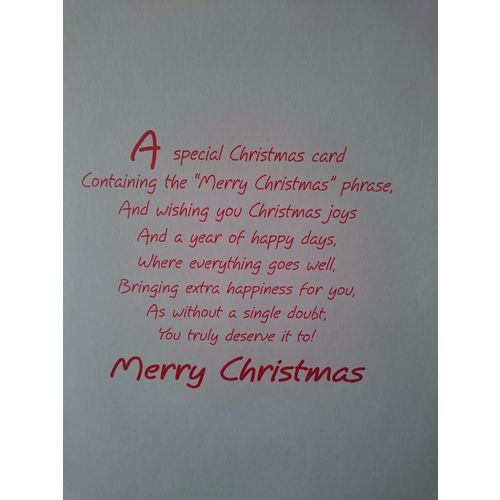 A special Christmas card
Containing the "Merry Christmas" phrase,
And wishing you Christmas joys
And a year of happy days,
Where everything goes well,
Bringing extra happiness for you,
As without a single doubt,
You truly deserve it to!
Merry Christmas